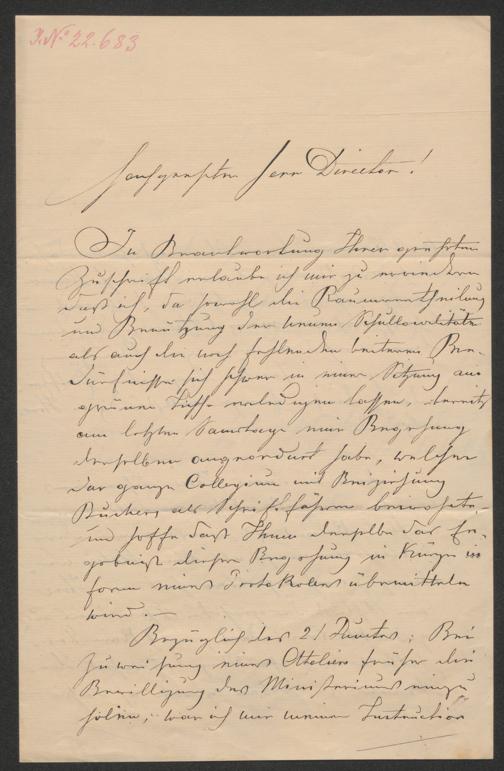 J. No 22.683
Hochgeehrter Herr Director!
In Beantwortung Ihrer geehrten
Zuschrift erlaube ich mir zu erwiedern
daß ich, da sowohl die Raumeintheilung
und Benützung der neuen Schullocalitäten
als auch die noch fehlenden weiteren Be-
dürfnisse sich schwer in einer Sitzung am
grünen Tisch erledigen lassen, bereits
am letzten Samstage eine Begehung
derselben angeordnet habe, welcher
das ganze Collegium mit Beiziehung
als Schriftführer beiwohnte
und hoffe daß Ihnen derselbe das Er-
gebniß dieser Begehung in Kürze in
form eines Protokolles übermitteln
wird. —
Bezüglich des 21 Punktes: Bei
Zuweisung eines Ateliers früher die
Bewilligung des Ministeriums einzu
holen, war ich mir meiner Instruction